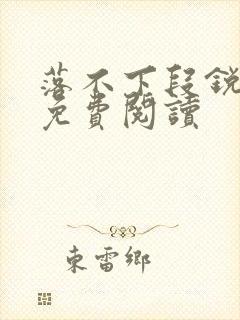 落不下段銳
免費閱讀
東雷鄉